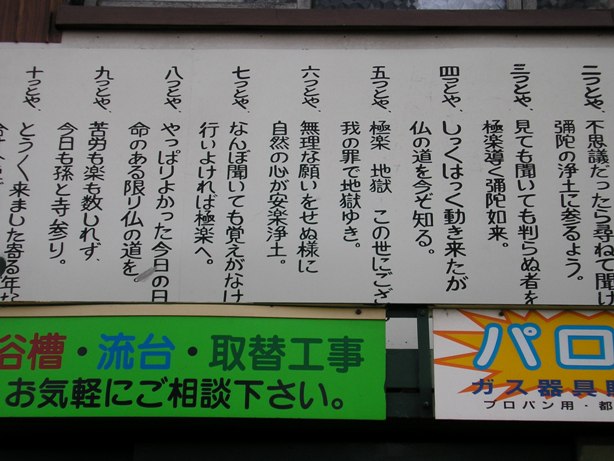 二つとや、不思議だったら尋ねて聞け
彌陀の浄土に参るよう。
三つとや、見ても聞いても判らぬ者を
極楽導く彌陀如来。
四つとや、しっくはっく動き来たが
仏の道を今ぞ知る。
五つとや、極楽 地獄 この世にござ
我の罪で地獄ゆき。
六つとや、無理な願いをせぬ様に
自然の心が安楽浄土。
七つとや、なんぼ聞いても覚えがなけ
行いよければ極楽へ。
八つとや、やっぱりよかった今日の日
命のある限り仏の道を。
九つとや、苦労も楽も数しれず、
今日も孫と寺参り。
十つとや、とうく来ました寄る年な
浴槽・流台・取替工事
お気軽にご相談下さい。
パロ
ガス器具
プロパン用・都